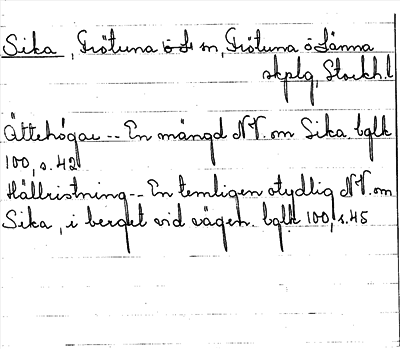 Sika, Frötuna ö L sn, Frötuna o Länna
skplg, Stockh.l
Ättehögar -- En mängd NV. om Sika. bglk
100, s. 42
Hällristning -- En temligen otydlig NV. om
Sika, i berget vid vägen. bglk 100, s. 45